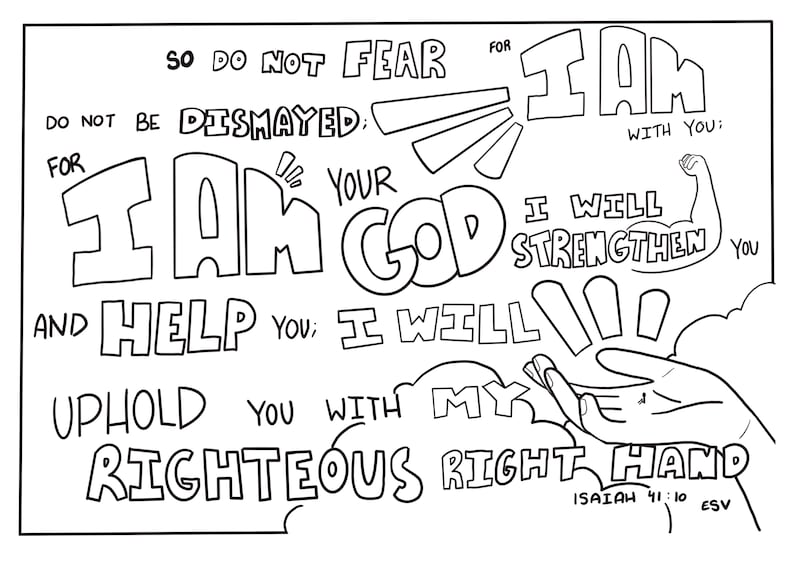 SO DO NOT FEAR FOR I AM
DO NOT BE DISMAYED; WITH YOU;
FOR I AM YOUR GOD I WILL STRENGTHEN YOU
AND HELP YOU; I WILL
UPHOLD YOU WITH MY
RIGHTEOUS RIGHT HAND
ISAIAH 41:10 ESV